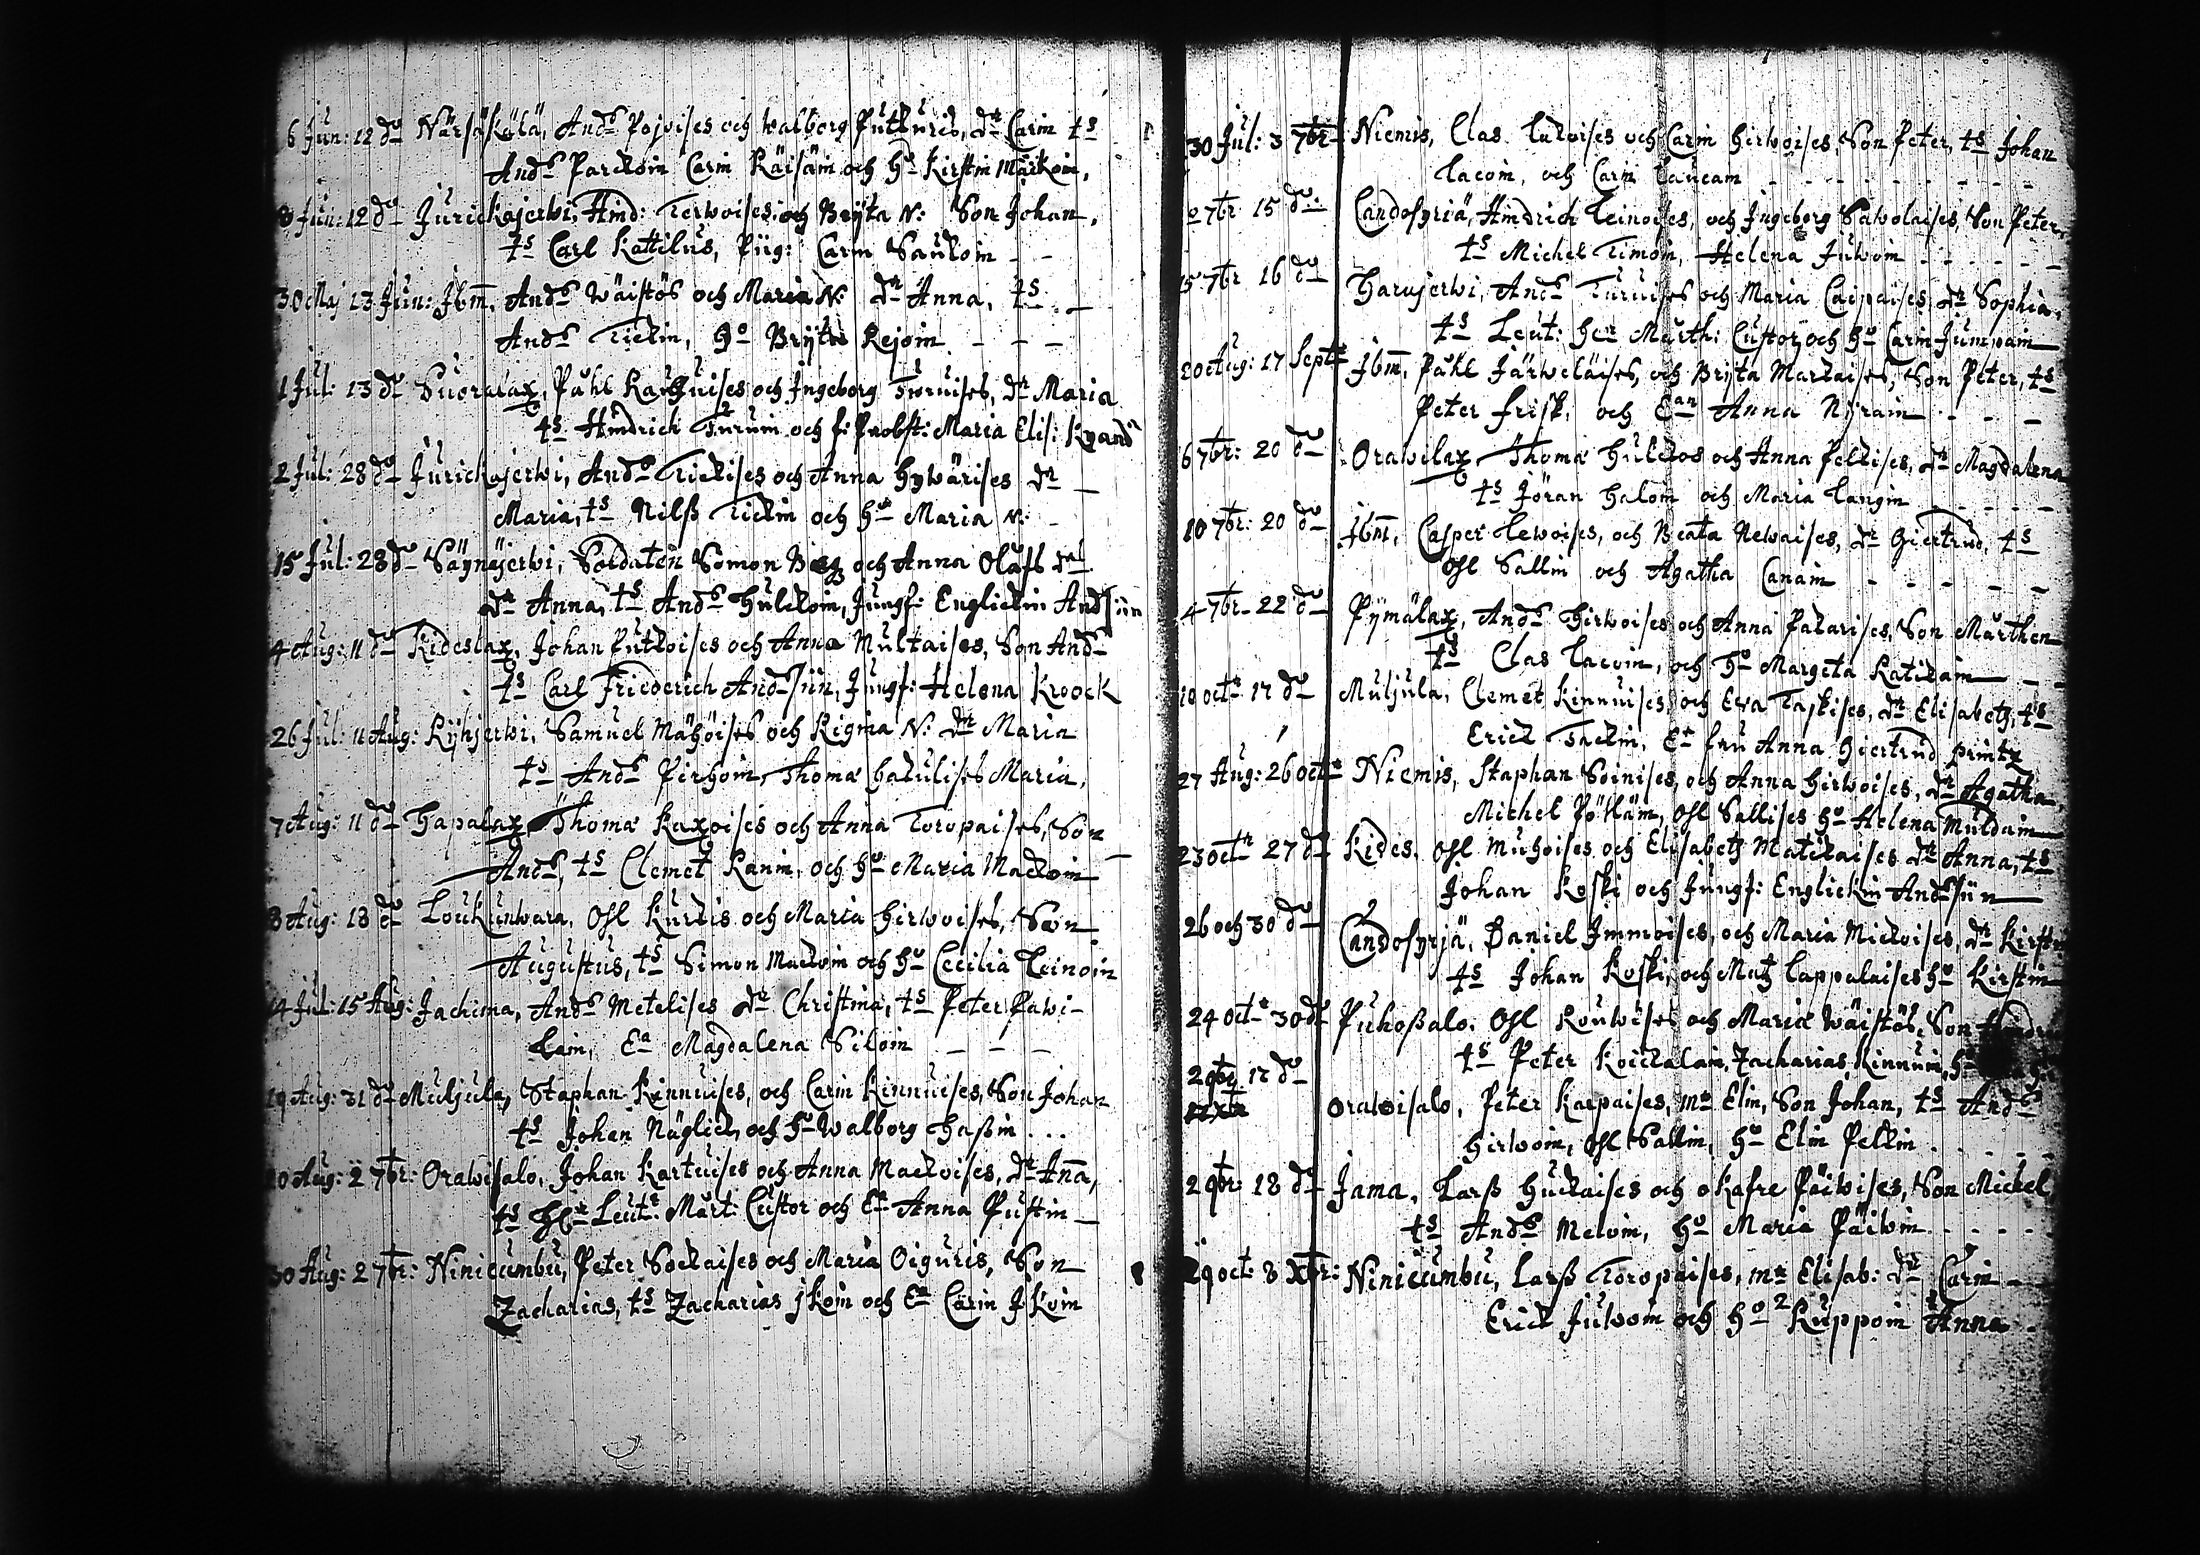 6 Jun: 12 do Närsäkälä, Ands Pojvises och Walborg Putkuris, dr Carin ts
Ands Parckoin Carin Räisäin och ho Kirstin Mäikoin,
8 Jun: 12 do Jurickajerwi, Hind: Terwoises och Brÿta N: Son Johan,
ts Carl Kattilus, Piig: Carin Saukoin - -
30 Maj 13 Jun: Jbm, Ands Wäistös och Maria N: dr Anna, ts -
Ands Tickin, ho Brÿta Rejoin - - -
1 Jul: 13 do Suoralax, Påhl och Ingeborg dr Maria
ts Hindrich Turuin och f: Probst: Maria Elis:
2 Jul: 28 do Jurickajerwi, Ands Tickises och Anna Hywärises dr -
Maria, ts Nilß Tickin och ho Maria N: -
15 Jul: 28 do Säynejerwi, Soldaten Simon och Anna Olafs
dr Anna, ts Ands Hulckoin, Jungf: Englickin Andsiin
4 Aug: 11 do Kideslax, Johan Putkoises och Anna Multaises, Son Ands
ts Carl Friederich Andsiin, Jungf: Helena Kroock
26 Jul: 11 Aug: Rÿhjerwi, Samuel Mähöises och Rigina N: dr Maria
ts Ands Pirhoin, Thomæ Cakulises Maria,
7 Aug: 11 do Hapalax, Thomæ Kaxoises och Anna Toropaises, Son
Ands, ts Clemet Ranin, och ho Maria Mackoin
8 Aug: 18 do Loukunwara, Ohl Kurkis och Maria Hirwoises, Son
Augustus, ts Simon Mackoin och ho Cecilia Leinoin
14 Jul: 15 Aug: Jachima, Ands Metelises dr Christina, ts Peter Pawi-
lain, Ea Magdalena Siloin - - -
19 Aug: 31 do Muljula, Staphan Kinnuises, och Carin Kinnuises, Son Johan
ts Johan Näglick, och ho Walborg Haßin ...
20 Aug: 2 7br: Orawisalo, Johan Kartuises och Anna Mackoises, dr Ana,
ts Hr Leut: Mårt: Custor och Ea Anna Pustin -
30 Aug: 2 7br: Ninicumbu, Peter Sockaises och Maria Oiguris, Son
Zacharias, ts Zacharias Jkoin och Ea Carin Jkoin
30 Jul: 3 7br Niemis, Clas Lukoises och Carin Hirwoises, Son Peter, ts Johan
Lacoin, och Carin Laucain - - - -
7br 15 do Candosyriä, Hindrich Leinoises, och Ingeborg Sawolaises, Son Peter,
ts Michel Timoin, Helena Juwoin - - - -
15 7br 16 do Harujerwi, Ands Turuises och Maria Caipaises, dr Sophia,
ts Leut: Herr Mårth: Custor och ho Carin Jumpain
20 Aug: 17 Septr Jbm, Påhl Järweläises, och Brÿta Markaises, Son Peter, ts
Peter Frisk, och Ean Anna Nÿrain - - -
6 7br: 20 do Orawilax, Thomæ Hulckos och Anna Pelkises, dr Magdalena
ts Jöran Haloin och Maria Langin - - - -
10 7br: 20 do Jbm, Casper Lewoises, och Beata Newaises, dr Giertrud, ts
Ohl Sallin och Agatha Canain - - - -
4 7br 22 do Pÿmälax, Ands Hirwoises och Anna Pakarises, Son Mårthen
ts Clas Lacoin, och ho Margeta Ratikain - -
10 octr 17 do Muljula, Clemet Kinnuises, och Eva Taskises, dr Elisabetz, ts
Erick Tackin, Er fru Anna Giertrud printz
27 Aug: 26 octr Niemis, Staphan Soinises, och Anna Hirwoises, dr Agatha,
Michel Pöxläin, Ohl Sallises ho Helena Muldain
23 octr 27 do Kides, Ohl Muhoises och Elisabetz Matikaises dr Anna, ts
Johan Koski och Jungf: Englickin Andsiin
26 och 30 do Candosyrjä, Daniel Immoises, och Maria Mickoises, dr
ts Johan Koski, och Matz Lappalaises ho Kirstin
24 octr 30 do Puhoßalo, Ohl och Maria Wäistös, Son
ts Peter Koickalain, Zacharias Kinnuin,
2 9br 17 do
Orawisalo, Peter Karpaises, mr Elin, Son Johan, ts Ands
Hirwoin, Ohl Sallin, ho Elin Pelkin - - -
2 9br: 18 do Jama, Larß Huckaises och Okafre Päiwises, Son Michel
ts Ands Meloin, ho Maria Päiwin - - - -
29 oct: 8 Xbr: Ninicumbu, Larß Toropaises, mr Elisab: dr Carin -
Erick Juwoin och ho Ruppoin Anna -